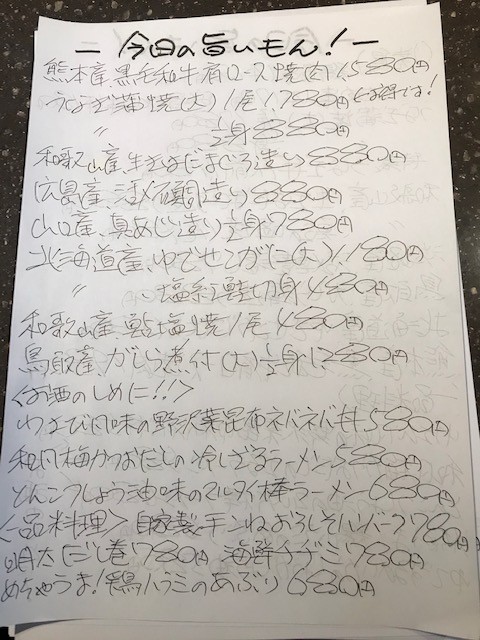 ー今日の旨いもん！ー
熊本産、黒毛和牛肩ロース焼肉1.580円
うなぎ蒲焼(大)1尾1.780円 お得です！
〃 1/2身880円
和歌山産、生きはだまぐろ造り880円
広島産、活〆鯛造り880円
山口産、真あじ造り1/2身780円
北海道産、ゆでせこがに(大)1.180円
〃 塩紅鮭切身480円
和歌山産、鮎塩焼1尾480円
鳥取産、がしら煮付(大)1/2身1280円
〈お酒のしめに！！〉
わさび風味の野沢菜昆布ネバネバ丼580円
和風梅かつおだしの冷しざるラーメン580円
とんこつしょう油味のマルタイ棒ラーメン680円
〈一品料理〉自家製チーズinおろしそハンバーグ780円
明太だし巻780円 海鮮チヂミ780円
めちゃうま！鶏ハラミのあぶり680円